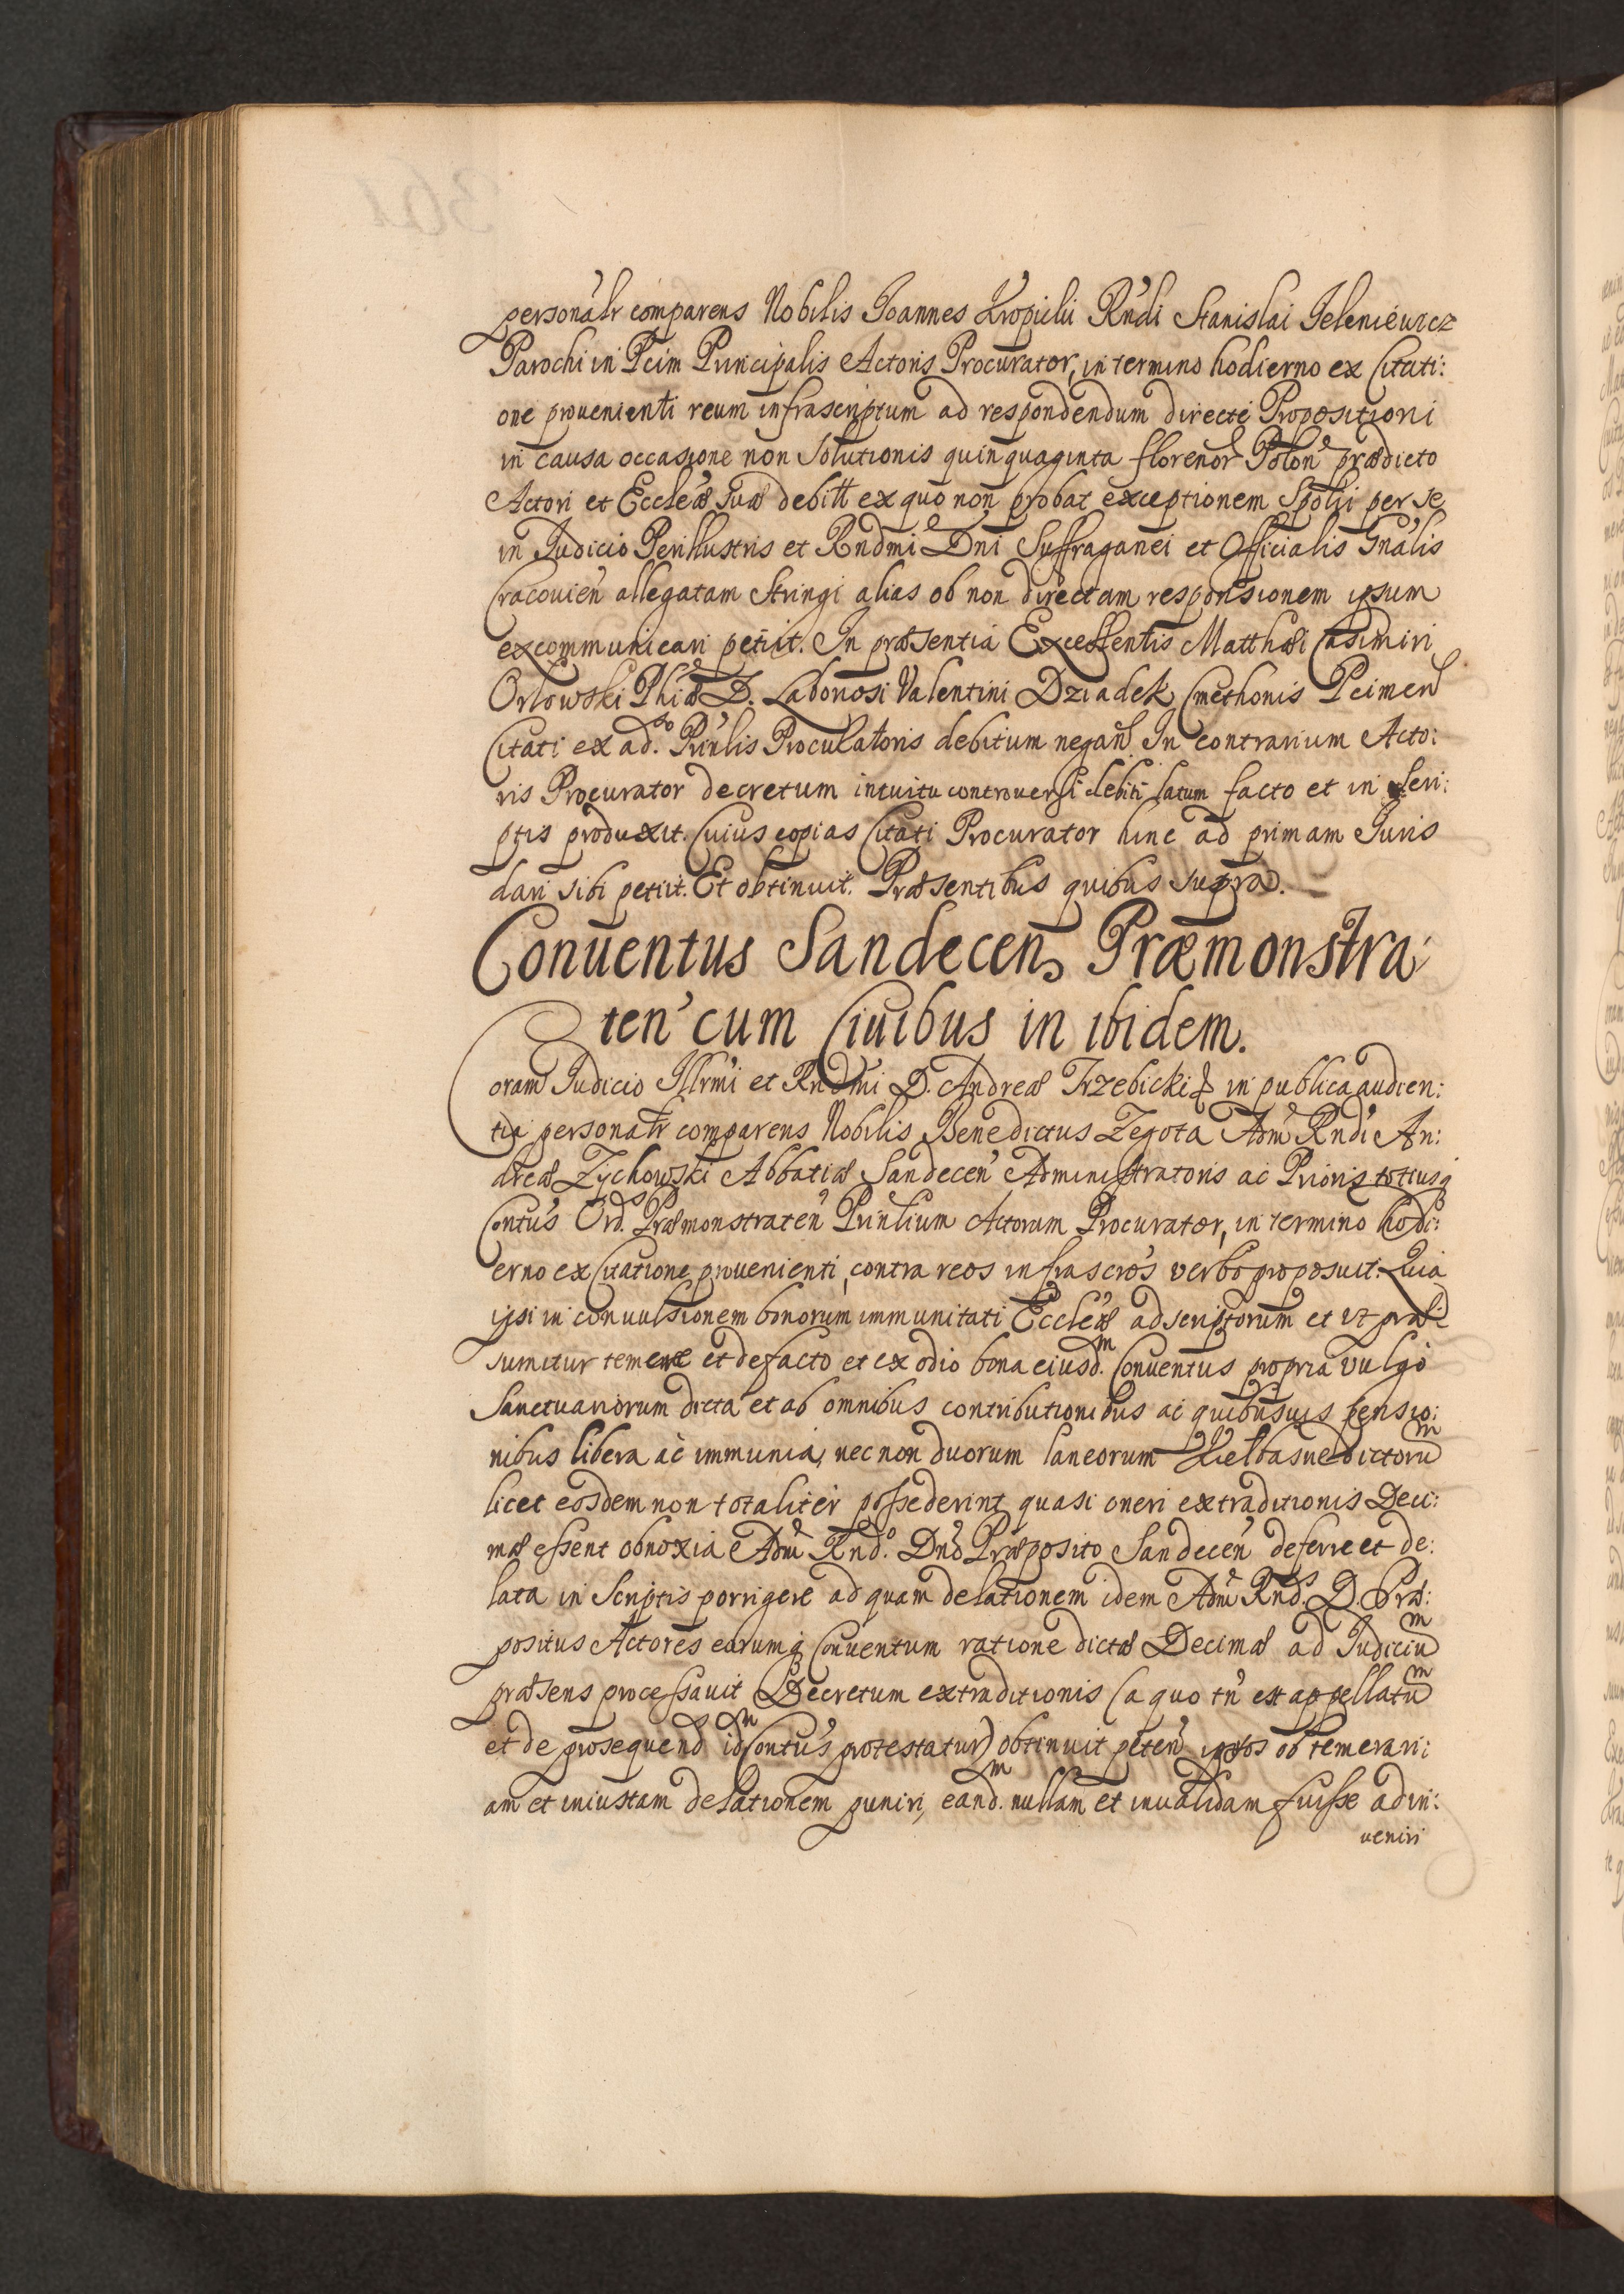 personalr comparens Nobilis Joannes Kropielii Rndi Stanislai Jeleniewicz
Parochi in Pcim Principalis Actoris Procurator, in termino hodierno ex Citati:
one prouenienti reum infrascriptum ad respondendum directe Propositioni
in causa occasione non Solutionis quinquaginta florenor Polon prædicto
Actori et Eccleæ suæ debitt ex quo non probat exceptionem Spolii per se
in Judicio Perillustris et Rndmi Dni Suffraganei et Officialis Gnalis
Cracouien allegatam Stringi alias ob non directam responsionem ipsum
excommunicari petiit. In præsentia Excellentis Matthæi Casimiri
Orlowski Phiæ D. Laboriosi Valentini Dziadek Cmethonis Pcimen
Citati ex ad.so Prinlis Procuratoris debitum negan. In contrarium Acto:
ris Procurator decretum intuitu controuersi debiti latum facto et in scri:
ptis produxit. Cuius copias Citati Procurator hinc ad primam Juris
dari sibi petiit. Et obtinuit. Præsentibus quibus supra.
Conuentus Sandecen Præmonstra:
ten cum Ciuibus in ibidem.
Coram Judicio Illrmi et Rndmi D. Andreæ Trzebicki in publica audien:
tia personalr comparens Nobilis Benedictus Zegota Adm Rndi An:
dreæ Zychowski Abbatiæ Sandecen Administratoris ac Prioris totiusq
Contus Ord.s Præmonstraten Prinlium Actorum Procurator, in termino hodi:
erno ex Citatione prouenienti, contra reos infrascros verbo proposuit: Quia
ipsi in conuulsionem bonorum immunitati Eccleæ adscriptorum et vt præ
sumitur temere et de facto et ex odio bona eiusd.m Conuentus propria vulgo
Sanctuariorum dicta et ab omnibus contributionibus ac quibusuis pensio:
nibus libera ac immunia, nec non duorum laneorum Kielbasne dictorum
licet eosdem non totaliter possederint quasi oneri extraditionis Deci:
mæ essent obnoxia Adm Rnd.o Dno Præposito Sandecen deferre et de:
lata in Scriptis porrigere ad quam delationem idem Adm Rnd.s D. Præ:
positus Actores eorumq Conuentum ratione dictæ Decimæ ad Judicium
præsens processauit Decretum extraditionis (a quo tn est appellatum
et de prosequend id Contus protestatur) obtinuit peten ipsos ob temerari:
am et iniustam delationem puniri, eand.m nullam et inualidam fuisse adin:
ueniri